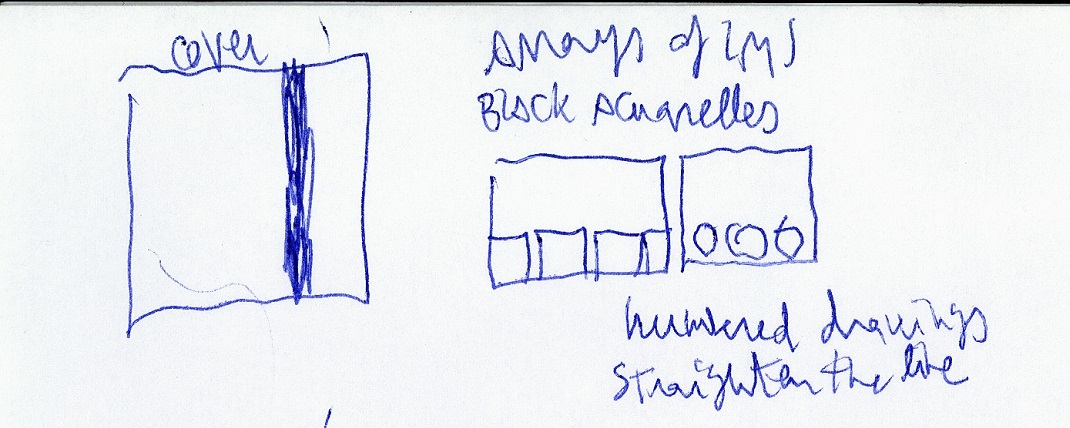 cover
Arrays of imgs
Block Acuarelles
numbered drawings
straighten the line